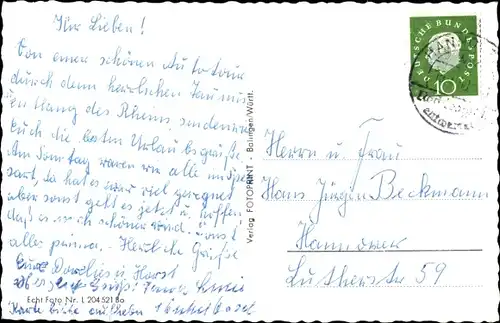 Ihr Lieben!
Von einer schönen Autotour
durch den herrlichen Taunus
entlang des Rheins, senden wir
Euch die besten Urlaubsgrüße.
Am Sonntag waren wir alle
da hat es zwar viel geregnet
aber sonst geht es jetzt u. hoffen,
daß es noch schöner wird. Sonst
alles prima. Herzliche Grüße
Eure Dorlies u. Horst
Karte bitte aufheben
Echt Foto Nr. L 204 521 Bo
Verlag FOTOPRINT - Balingen/Württ.
DEUTSCHE BUNDESPOST
10
HAN
Herrn u. Frau
Hans Jürgen Beckmann
Hannover
Lutherstr. 59